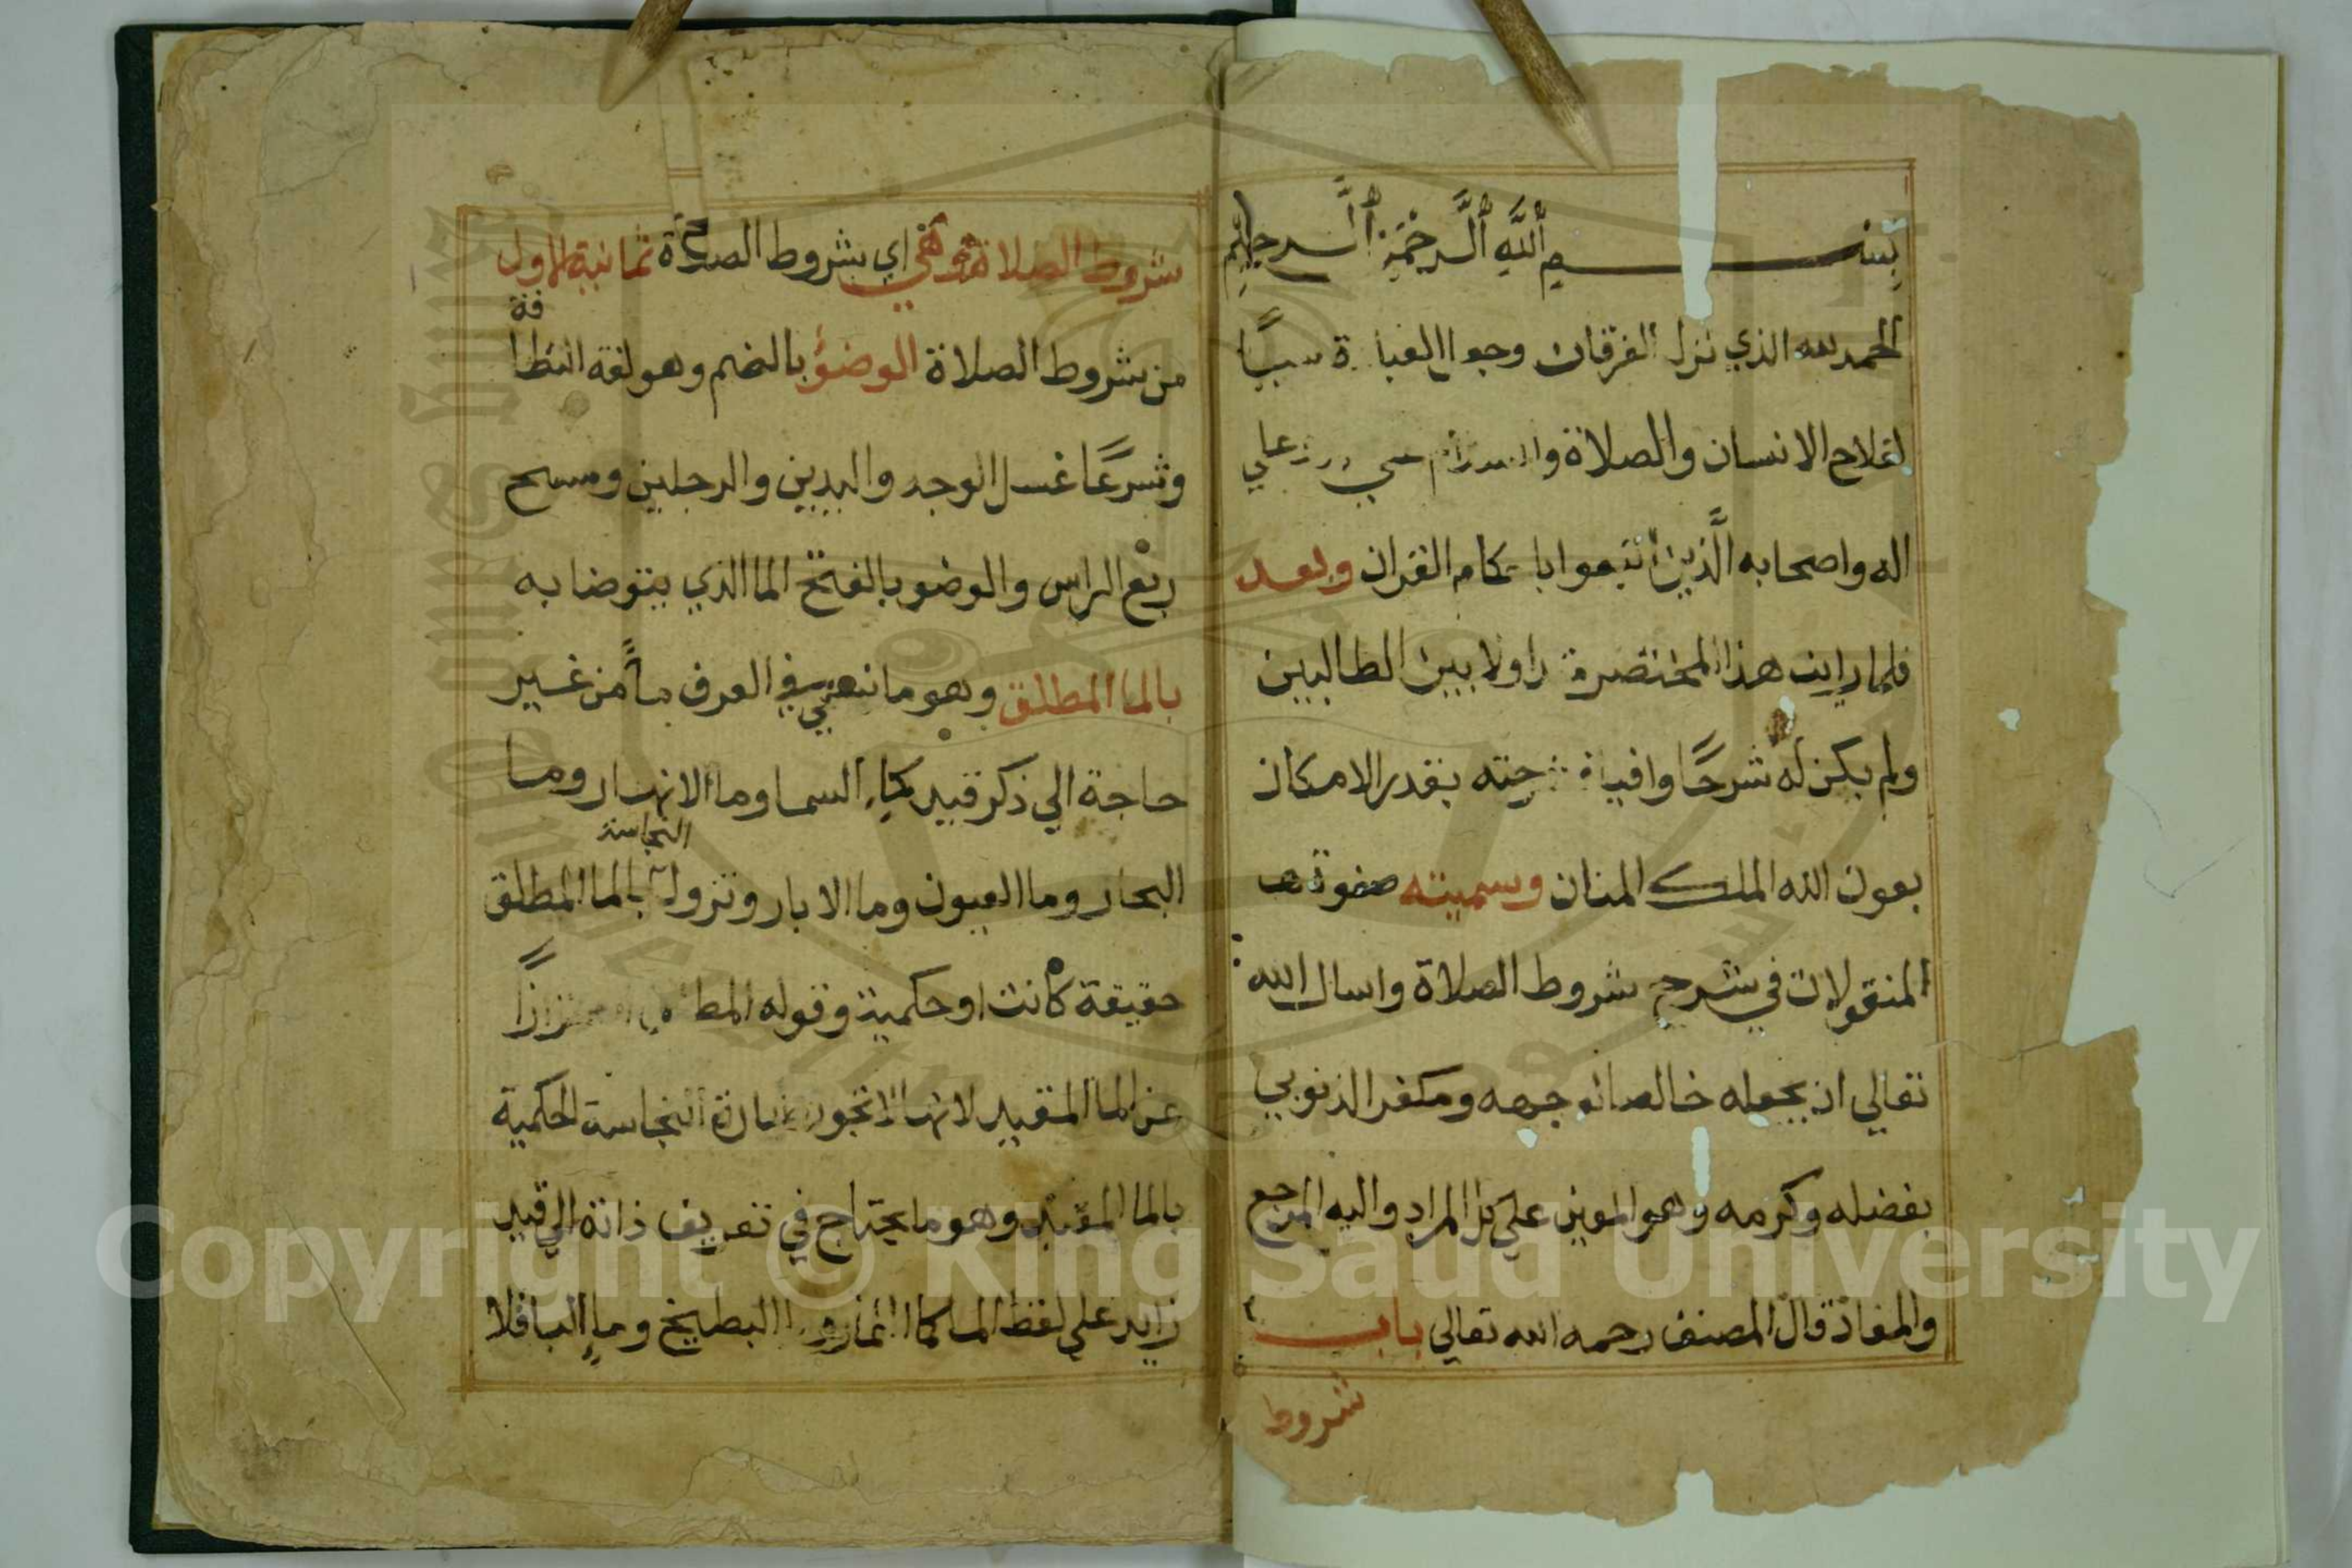 بسم الله الرحمن الرحيم
الحمد لله الذي نزل الفرقان وجعل العبادة سببا
لفلاح الانسان والصلاة والسلام علي
اله واصحابه الذين اتبعوا باحكام القران وبعد
فلما رايت هذا المختصر متداولا بين الطالبين
ولم يكن له شرحا وافيا شرحته بقدر الامكان
بعون الله الملك المنان وسميته صفوة
المنقولات في شرح شروط الصلاة واسال الله
تعالي ان يجعله خالصا لوجهه ومكفرا لذنوبي
بفضله وكرمه وهو المعين علي كل المراد واليه المرجع
والمفاد قال المصنف رحمه الله تعالي باب
شروط
شروط الصلاة هي اي شروط الصلاة ثمانية الاول
من شروط الصلاة الوضؤ بالضم وهو لغة النظافة
وشرعًا غسل الوجه واليدين والرجلين ومسح
ربع الراس والوضو بالفتح الما الذي يتوضا به
بالما المطلق وهو ما في العرف مأ من غير
حاجة الي ذكر قيد كماء السما وما الانهار وما
البحار وما العيون وما الابار وتزول النجاسة بالما المطلق
حقيقة كانت او حكمية وقوله المطلق احترازًا
عن الما المقيد لانها لا تجوز ازالة النجاسة الحكمية
بالما المقيد وهو ما يحتاج في تعريف ذاته الي قيد
زايد علي لفظ الما كما الثمار وما البطيخ وماء الباقلا
Copyright © King Saud University